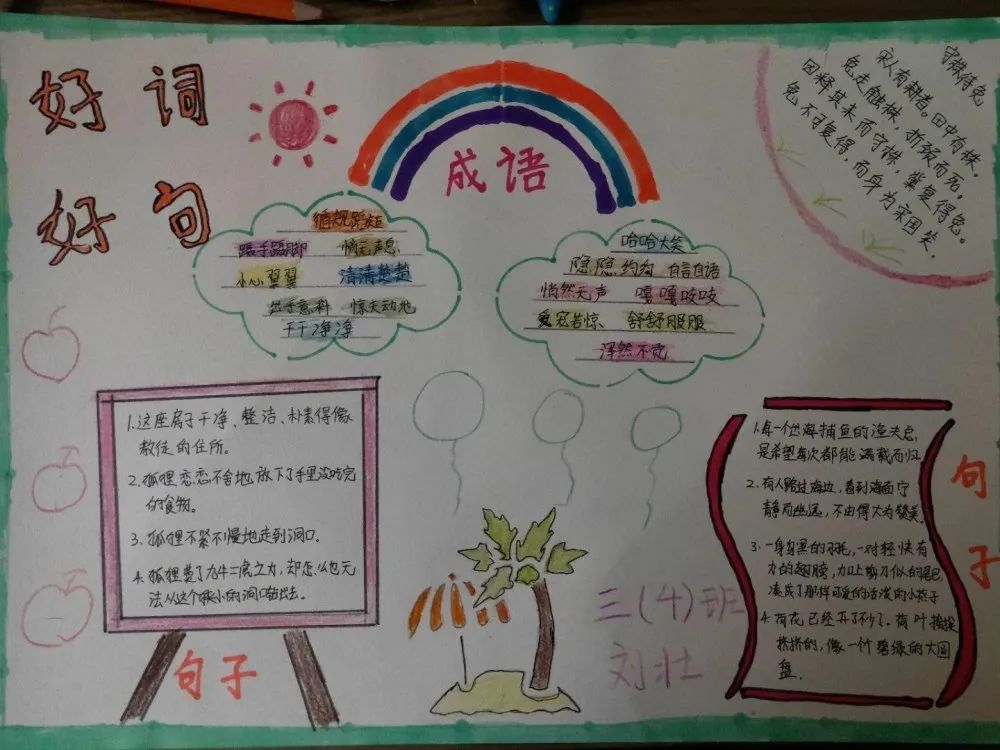 好词
好句
成语
循规蹈矩
蹑手蹑脚 悄无声息
小心翼翼 清清楚楚
出乎意料 惊天动地
干干净净
哈哈大笑
隐隐约约 自言自语
悄然无声 嘎嘎吱吱
受宠若惊、 舒舒服服
浑然不觉
守株待兔
宋人有耕者。田中有株。
兔走触株，折颈而死。
因释其耒而守株，冀复得兔。
兔不可复得，而身为宋国笑。
1.这座房子干净、整洁、朴素得像
教徒的住所。
2.狐狸恋恋不舍地放下了手里没吃完
的食物。
3.狐狸不紧不慢地走到洞口。
4.狐狸费了九牛二虎之力，却怎么也无
法从这个狭小的洞口钻出去。
句子
1.每一个出海捕鱼的渔夫总
是希望每次都能满载而归。
2.有人路过海边，看到海面宁
静而悠远，不由得大为赞美。
3.一身乌黑的羽毛，一对轻快有
力的翅膀，加上剪刀似的尾巴，
凑成了那样可爱的活泼的小燕子
4.荷花已经开了不少了。荷叶挨挨
挤挤的，像一个碧绿的大圆
盘.
句子
三(4)班
刘壮